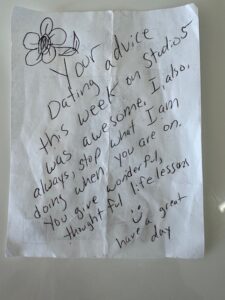 Your
Dating advice
this week on Studio5
was awesome. I, also,
always, stop what I am
doing when you are on.
You give wonderful,
thoughtful life lessons
have a great
day